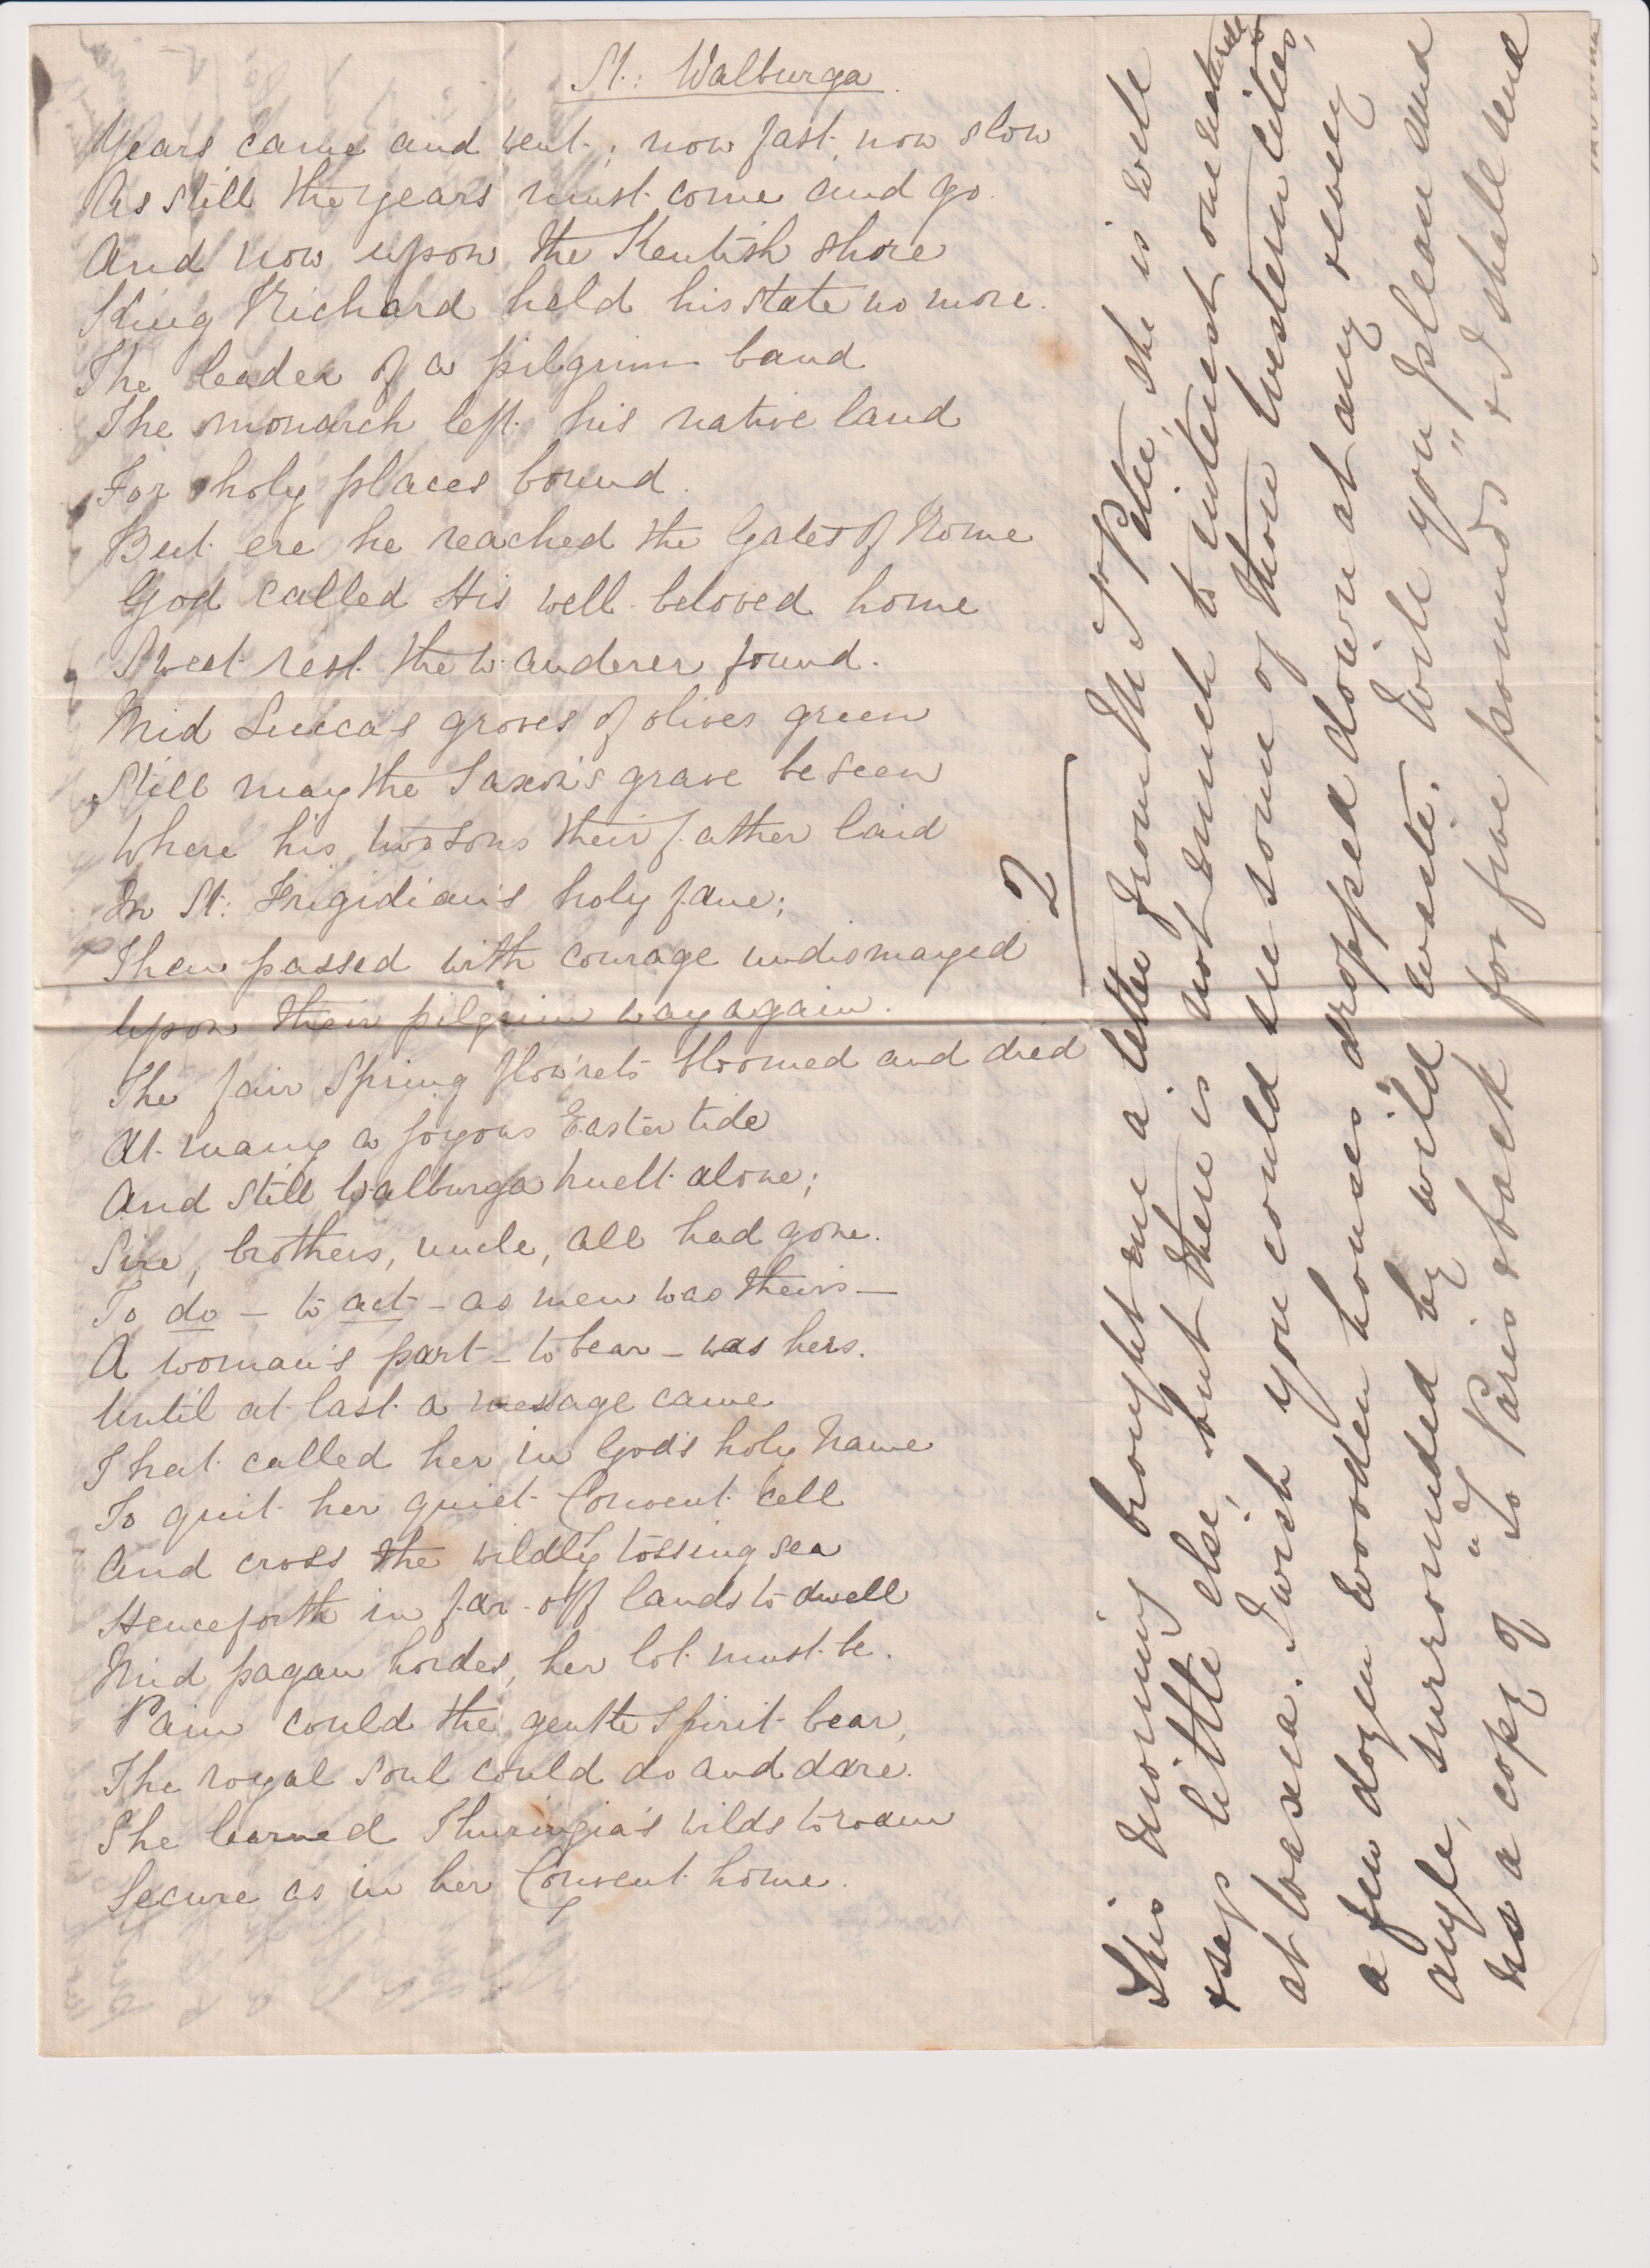 St: Walburga
Years came and went; now fast, now slow
As still the years must come and go.
And now upon the Kentish shore
King Richard held his state no more.
The leader of a pilgrim band
The monarch left his native land
For holy places bound.
But ere he reached the Gates of Rome
God called His well-beloved home
Sweet rest the wanderer found.
Mid Lucca's groves of olives green
Still may the Saxon's grave be seen
Where his two sons their father laid
In St: Frigidian's holy fane;
Then passed with courage undismayed
Upon their pilgrim way again.
The fair Spring flow'rets bloomed and died
At many a joyous Easter tide
And still Walburga knelt alone;
Sire, brothers, uncle, all had gone.
To do – to act – as men was theirs –
A woman's part – to bear – was hers.
Until at last a message came
That called her in God's holy Name
To quit her quiet Convent cell
And cross the wildly tossing sea
Henceforth in far-off lands to dwell
Mid pagan hordes, her lot must be.
Pain could the gentle spirit bear,
The royal soul could do and dare.
She learned Thuringia's wilds to roam
Secure as in her Convent home.
2
This morning brought me a letter from M. J. Petre, she is well
& says little else, but there is not much to interest one
at sea. I wish you could see some of those Western cities,
a few dozen wooden houses dropped down at any & every
angle, surrounded by wild waste. Will you please send
us a copy of "To Paris & back for five pounds" & I shall send